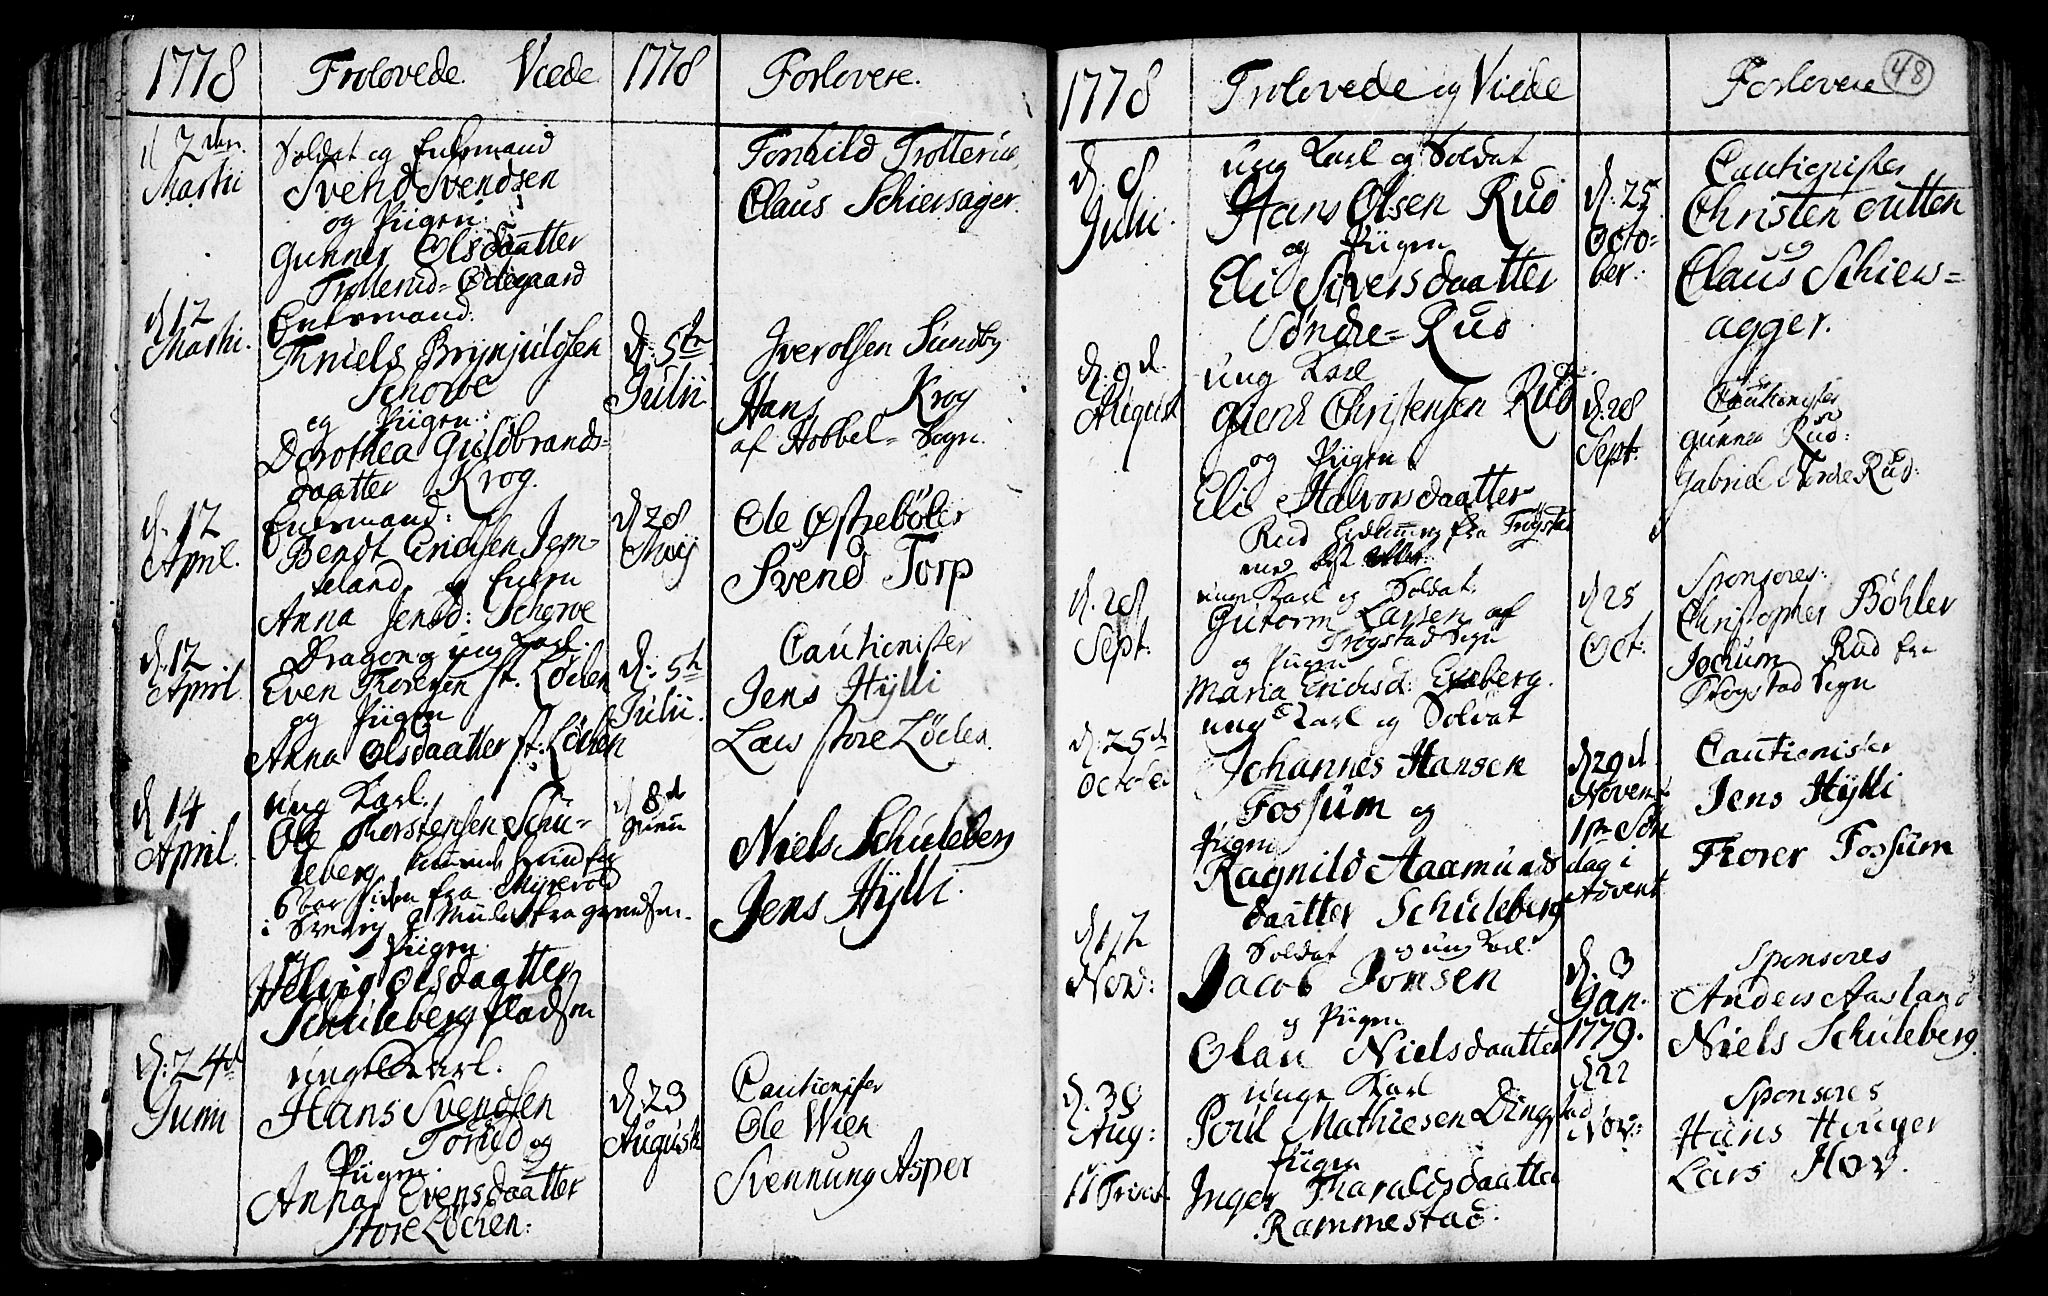 1778
Trolovede Viede
1778
Forlovere.
d 2den
Soldat og Enkemand
Martii
Svend Svendsen
og Pigen:
Gunner Olsdaatter
Trollerud-Ødegaard
Torkild Trollerud
Claus Schiersager.
d 12
Enkemand:
Martii.
Thniels Brynjuldsen
Schorve
og Pigen:
Dorothea Guldbrands-
daatter Krog.
d: 5te
Julii
Iver Olsen Sundby
Hans Krog
af Hobbel-Sogn.
d. 12
Enkemand:
April.
Bendt Erichsen Jem-
teland og Enken
Anna Jensd: Schorve
d 28
Maij
Ole Østrebøler
Svend Torp
d. 12
Dragon og ung Karl.
April.
Even Thoresen st. Løchen
og Pigen
Anna Olsdaatter st: Løchen
d: 5te
Julii.
Cautionister
Jens Hylli
Lars store Løchen.
d 14
ung Karl.
April.
Ole Thorstensen Schu-
leberg
6 aar siden fra
i Sverrig
og Pigen
Helvig Olsdaatter
Schulebergpladsen
d 8de
Niels Schuleberg
Jens Hylli.
d: 24de
unge Karl.
Junii
Hans Svendsen
Torud og
Pigen.
Anna Evensdaatter
store Løchen:
d. 23
August
Cautionister
Ole Wien
Svennung Asper
1778
Trolovede og Viede
Forlovere
48
d. 8
ung Karl og Soldat
Julii.
Hans Olsen Rud
og Pigen
Eli Siversdaatter
Søndre-Rud
d: 25
Octo-
ber:
Cautionister
Christen Outten
og
Claus Schiers-
agger.
d. 9d.
ung Karl
August
Christensen Rud
og Pigen
Eli Halvorsdaatter
Rud fra Trygstad
d: 28
Sept:
Cautionister
Gunner Rud:
Gabriel Nordre Rud:
d. 28
unge Karl og Soldat:
Sept:
Gutorm Larsen af
Trøgstad Sogn
og Pigen
Maria Erichsd: Egeberg.
d 25
Oct:
Sponsores:
Christopher Bøhler
Jochum Rud fra
Trøgstad Sogn
d: 25de
ung Karl og Soldat
October
Johannes Hansen
Fossum og
Pigen
Ragnild Aamunds
daatter Schuleberg
d 29d.
Novemb
1ste Søn
dag i
Advent
Cautionister
Jens Hylli
Thorer Fossum
d 12
Soldat og ung Karl
Nov:
Jacob Jonsen
og Pigen
Olau Nielsdaatter
d. 3
Jan.
1779.
Sponsores
Anders Aasland
Niels Schuleberg.
d. 30
unge Karl
Aug:
Poul Mathiesen Dingstad
Pigen
11 Trinit.
Inger Tharaldsdaatter
Rammestad.
d 22
Nov:
Sponsores
Hans Hauger
Lars Hov.